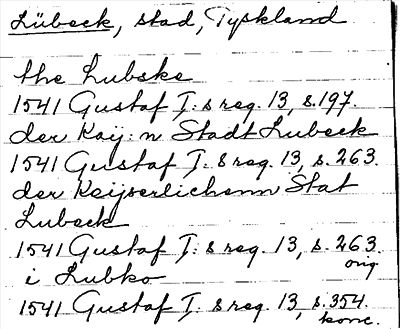 Lübeck, stad, Tyskland
the Lubske
1541 Gustaf I:s reg. 13, s.197.
der Kaÿ:n Stadt Lubeck
1541 Gustaf I:s reg. 13, s. 263.
der Keijserlichenn Stat
Lubeck
1541 Gustaf I:s reg. 13, s. 263.
orig.
i Lubko
1541 Gustaf I:s reg. 13, s. 354.
konc.